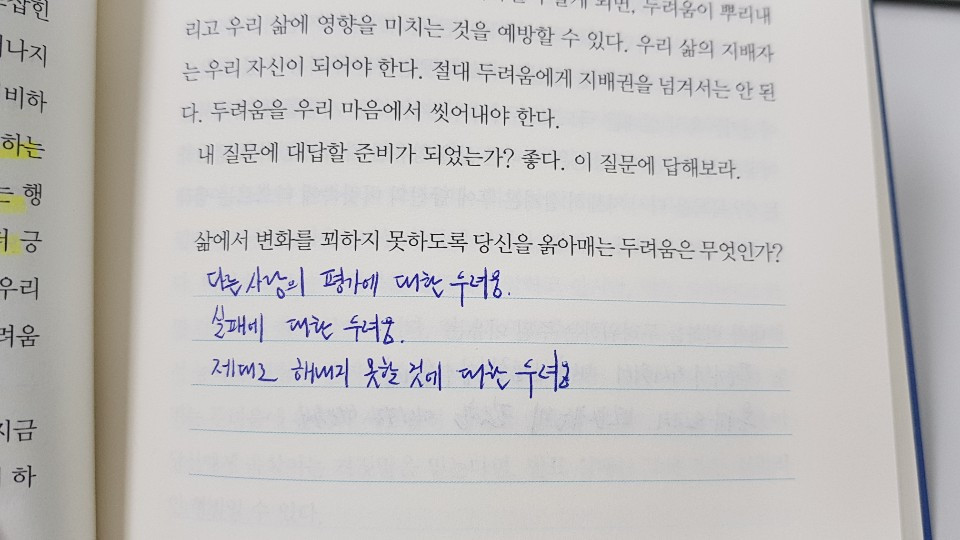 삽힌
나지
비하
하는
는 행
긍
우리
려움
지금
하
되면, 두려움이 뿌리내
리고 우리 삶에 영향을 미치는 것을 예방할 수 있다. 우리 삶의 지배자
는 우리 자신이 되어야 한다. 절대 두려움에게 지배권을 넘겨서는 안 된
다. 두려움을 우리 마음에서 씻어내야 한다.
내 질문에 대답할 준비가 되었는가? 좋다. 이 질문에 답해보라.
삶에서 변화를 꾀하지 못하도록 당신을 옭아매는 두려움은 무엇인가?
다른 사람의 평가에 대한 두려움.
실패에 대한 두려움.
제대로 해내지 못할 것에 대한 두려움